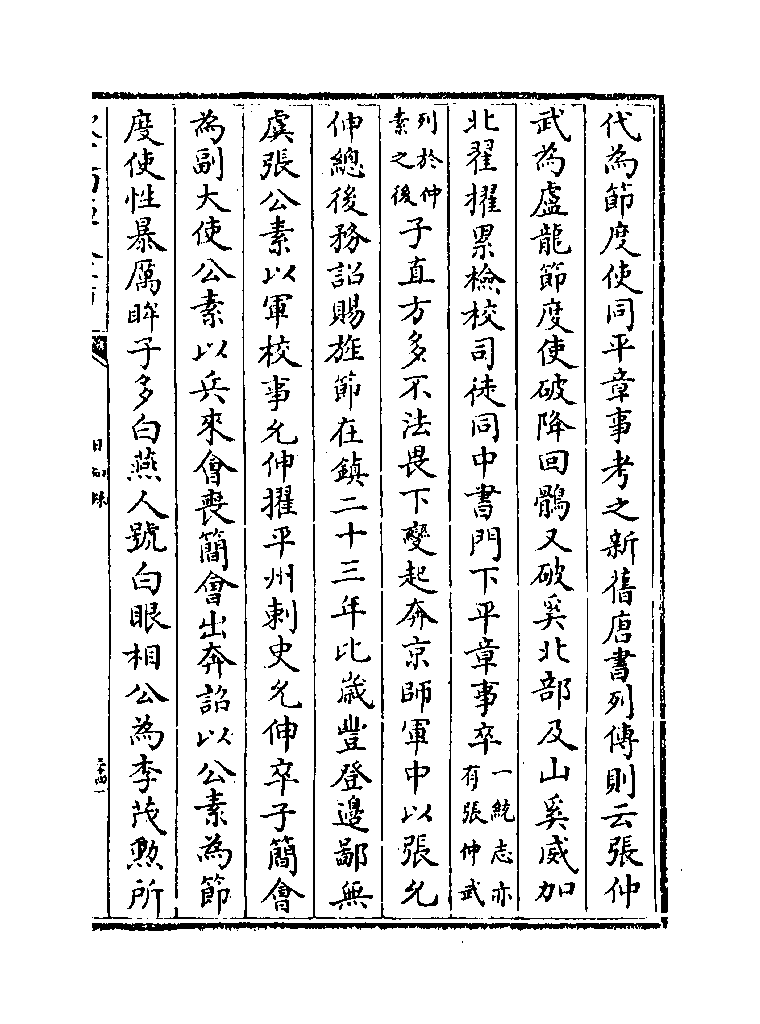 代為節度使同平章事考之新舊唐書列傳則云張仲
武為盧龍節度使破降回鶻又破奚北部及山奚威加
北翟擢累檢校司徒同中書門下平章事卒一統志亦有張仲武
列於仲素之後子直方多不法畏下變起奔京師軍中以張允
伸總後務詔賜旌節在鎮二十三年比歲豐登邊鄙無
虞張公素以軍校事允伸擢平州刺史允伸卒子簡會
為副大使公素以兵來會喪簡會出奔詔以公素為節
度使性暴厲眸子多白燕人號白眼相公為李茂勲所
日知錄
二十四